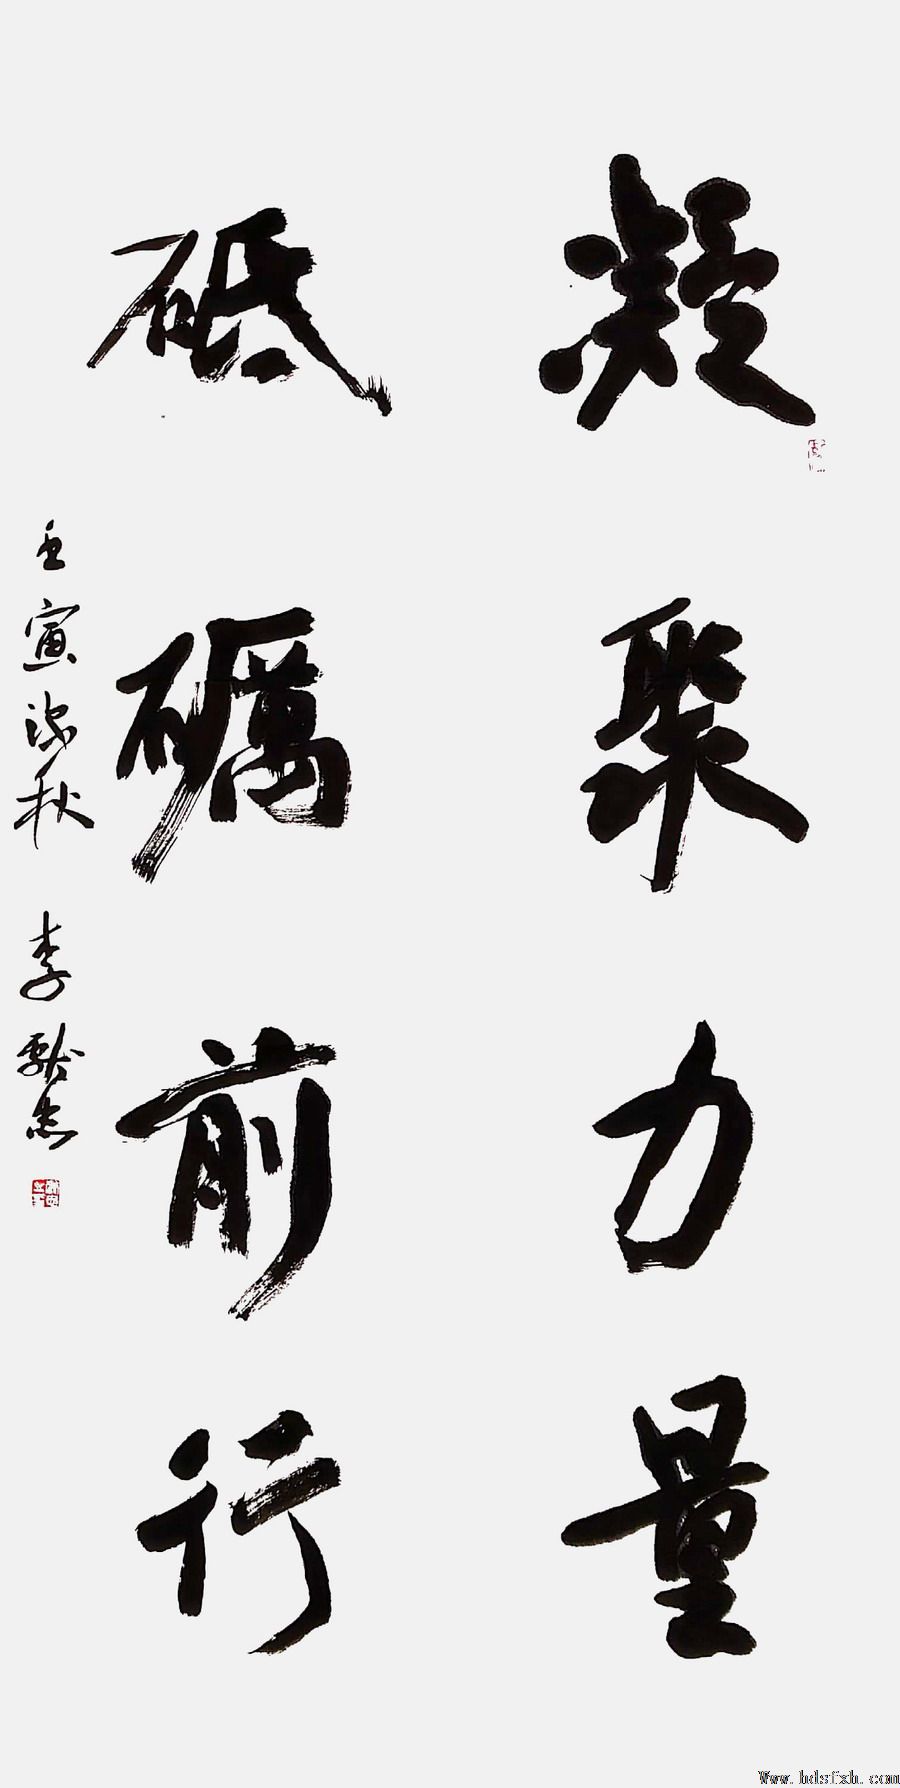 凝聚力量
砥礪前行
壬寅深秋 李献忠
Www.hdsfxh.com